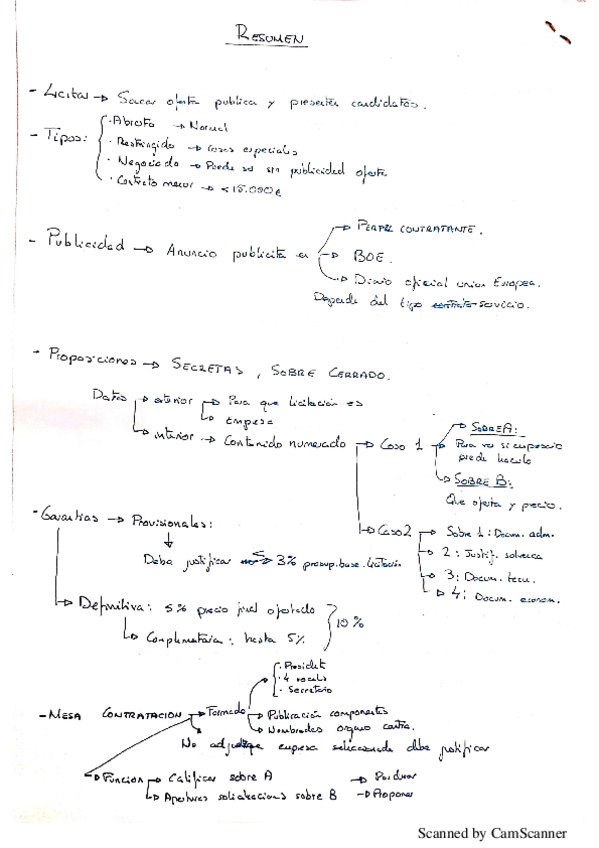 RESUMEN
- Licitar → Sacar oferta publica y presentar candidatos.
- Tipos:
· Abierto → Normal
· Restringido → casos especiales
· Negociado → Puede ser sin publicidad oferta
· Contrato menor → <18.000€
- Publicidad → Anuncio publicita en
→ PERFIL CONTRATANTE.
→ BOE.
→ Diario oficial union Europea.
Depende del tipo servicio.
- Proposiciones → SECRETAS, SOBRE CERRADO.
Datos → exterior → Para que licitación es
→ Empresa
→ interior → Contenido numerado → Caso 1 → SOBRE A:
Para ver si empresario puede hacerlo
→ SOBRE B:
Que oferta y precio.
→ Caso 2 → Sobre 1: Docum. adm.
→ 2: Justif. solvencia
→ 3: Docum. tecn.
→ 4: Docum. econom.
- Garantias → Provisionales:
Debe justificar 3% presup. base. licitación
→ Definitiva: 5% precio final ofertado
→ Complementaria: hasta 5%
10%
- MESA CONTRATACION → Formado
· Presidente
· 4 vocales
· Secretario
→ Publicación componentes
→ Nombrados organo contra.
No adjudique empresa seleccionada debe justificar
→ FUNCION → Calificar sobre A →
→ Aperturas sobre B → Proponer
Scanned by CamScanner